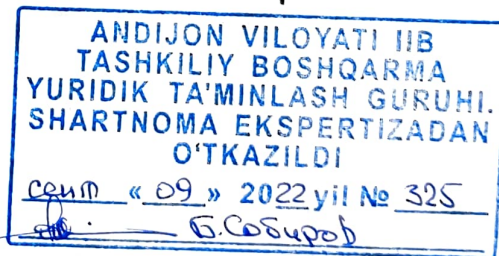 ANDIJON VILOYATI IIB
TASHKILIY BOSHQARMA
YURIDIK TA'MINLASH GURUHI.
SHARTNOMA EKSPERTIZADAN
O'TKAZILDI
сент « 09 » 2022 yil № 325
Б.Собиров